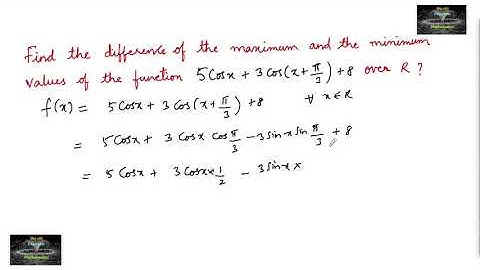 Find the difference of the maximum and the minimum
values of the function 5Cosx + 3Cos(x+π/3) + 8 over R ?
f(x) = 5Cosx + 3Cos(x+π/3) + 8 ∀ x∈R
= 5Cosx + 3Cosx Cos π/3 - 3Sinx Sin π/3 + 8
= 5Cosx + 3Cosx × 1/2 - 3Sinx ×
Mathematics